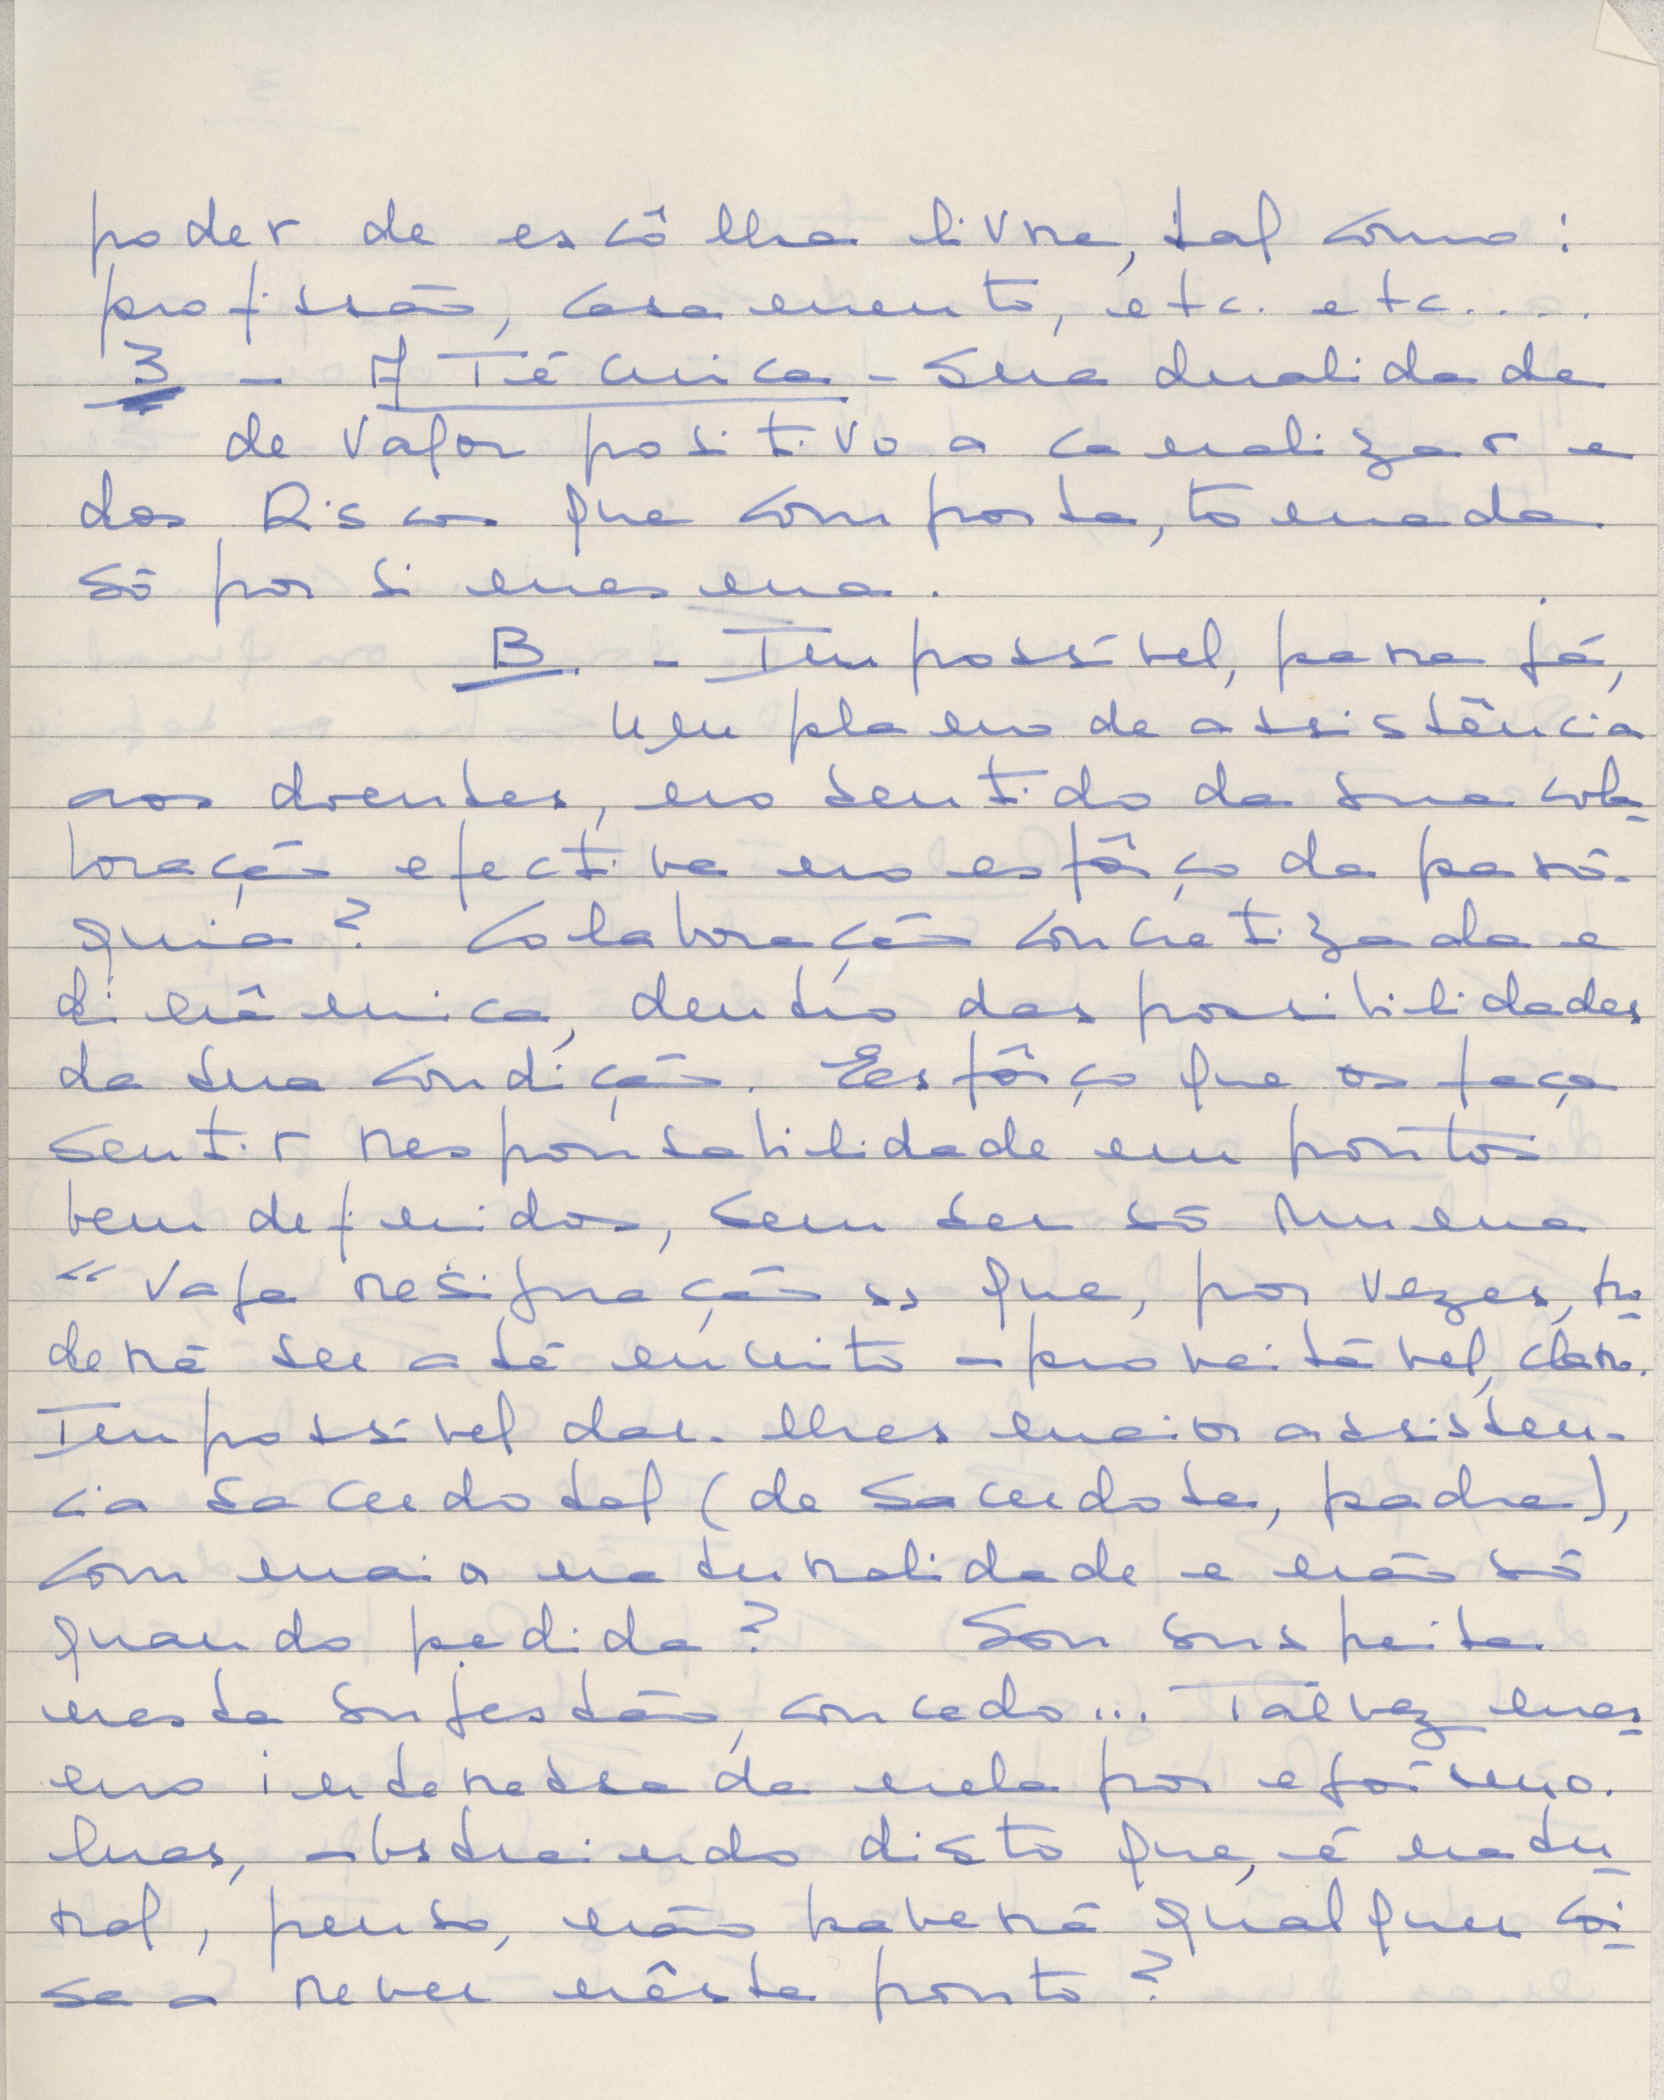 poder de escôlha livre, tal como:
profissão, casamento, etc. etc....
3 - A Técnica - Sua dualidade
de valor positivo a canalizar e
dos Riscos que comporta, tomada
só por si mesma.
B. - Impossível, para já,
um plano de assistência
aos doentes, no sentido da sua cola-
boração efectiva no esfôrço da paró-
quia? Colaboração concretizada e
dinâmica, dentro das possibilidades
da sua condição. Esfôrço que os faça
sentir responsabilidade em pontos
bem definidos, sem ser só numa
"vaga resignação" que, por vezes, po-
derá ser até muito aproveitável, claro.
Impossível dar-lhes maior assistên-
cia sacerdotal (de sacerdote, padre),
com maior naturalidade e não só
quando pedida? Sou suspeita
nesta sugestão, concedo... Talvez mes-
mo interessada nela por egoísmo.
Mas, abstraindo disto que, é natu-
ral, penso, não haverá qualquer coi-
sa a rever nêste ponto?